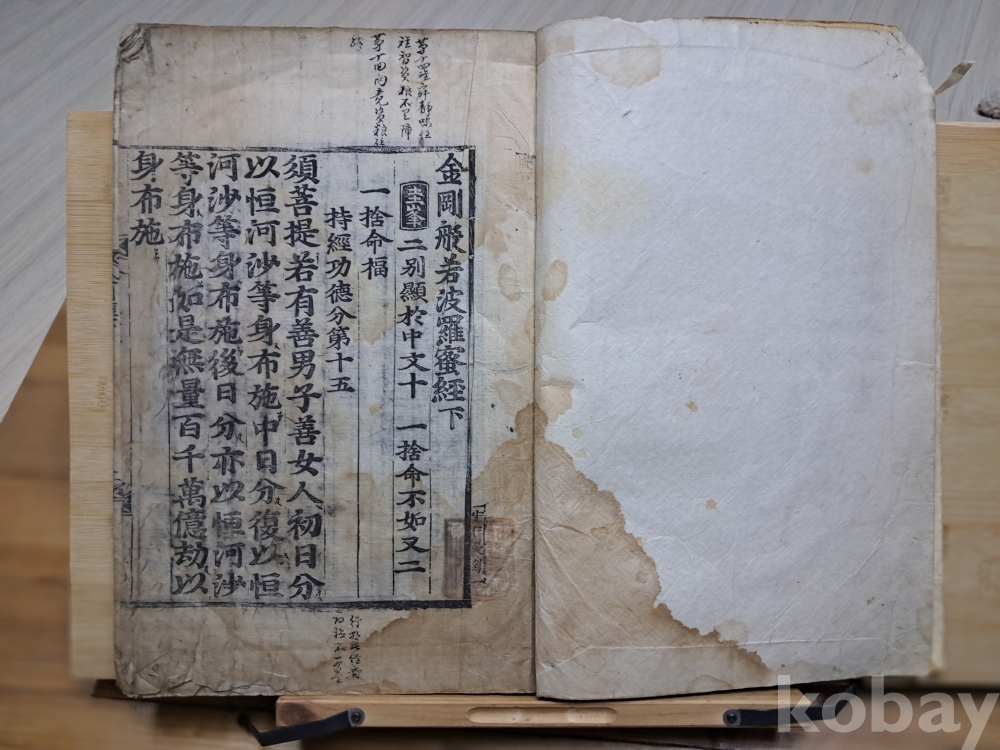 金剛般若波羅蜜經下
圭峯 二別顯於中文十 一捨命不如又二
一捨命福
持經功德分第十五
須菩提若有善男子善女人初日分
以恒河沙等身布施中日分復以恒
河沙等身布施後日分亦以恒河沙
等身布施如是無量百千萬億劫以
身布施
kobay